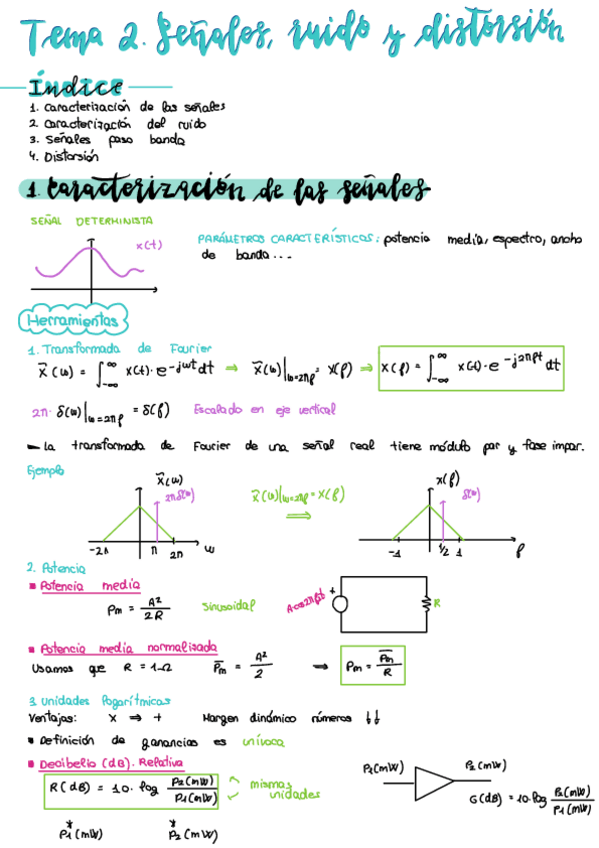 Tema 2. Señales, ruido y distorsión
Índice
1. Caracterización de las señales
2. Caracterización del ruido
3. Señales paso banda
4. Distorsión
1. Caracterización de las señales
SEÑAL DETERMINISTA
x(t)
PARÁMETROS CARACTERÍSTICOS: potencia media, espectro, ancho
de banda...
Herramientas
1. Transformada de Fourier
X̃(ω) = ∫_{-∞}^{∞} x(t)·e^{-jωt} dt ⇒ X̃(ω)|_{ω=2πf} = X(f) ⇒ X(f) = ∫_{-∞}^{∞} x(t)·e^{-j2πft} dt
2π·δ(ω)|_{ω=2πf} = δ(f) Escalado en eje vertical
La transformada de Fourier de una señal real tiene módulo par y fase impar.
Ejemplo
X̃(ω)
2πδ(ω)
-2π π 2π ω
X̃(ω)|_{ω=2πf} = X(f)
⇒
X(f)
δ(ω)
-1 1/2 1 f
2. Potencia
Potencia media
Pm = A²/2R sinusoidal
A·cos2πf₀t
+
R
Potencia media normalizada
Usamos que R = 1Ω P̄m = A²/2 → Pm = P̄m/R
3. Unidades logarítmicas
Ventajas: x ⇒ + Margen dinámico números ↓↓
Definición de ganancias es unívoca
Decibelio (dB). Relativa
R(dB) = 10·log P2(mW)/P1(mW)
mismas
unidades
P1(mW) P2(mW)
G(dB) = 10·log P2(mW)/P1(mW)
* *
P1(mW) P2(mW)